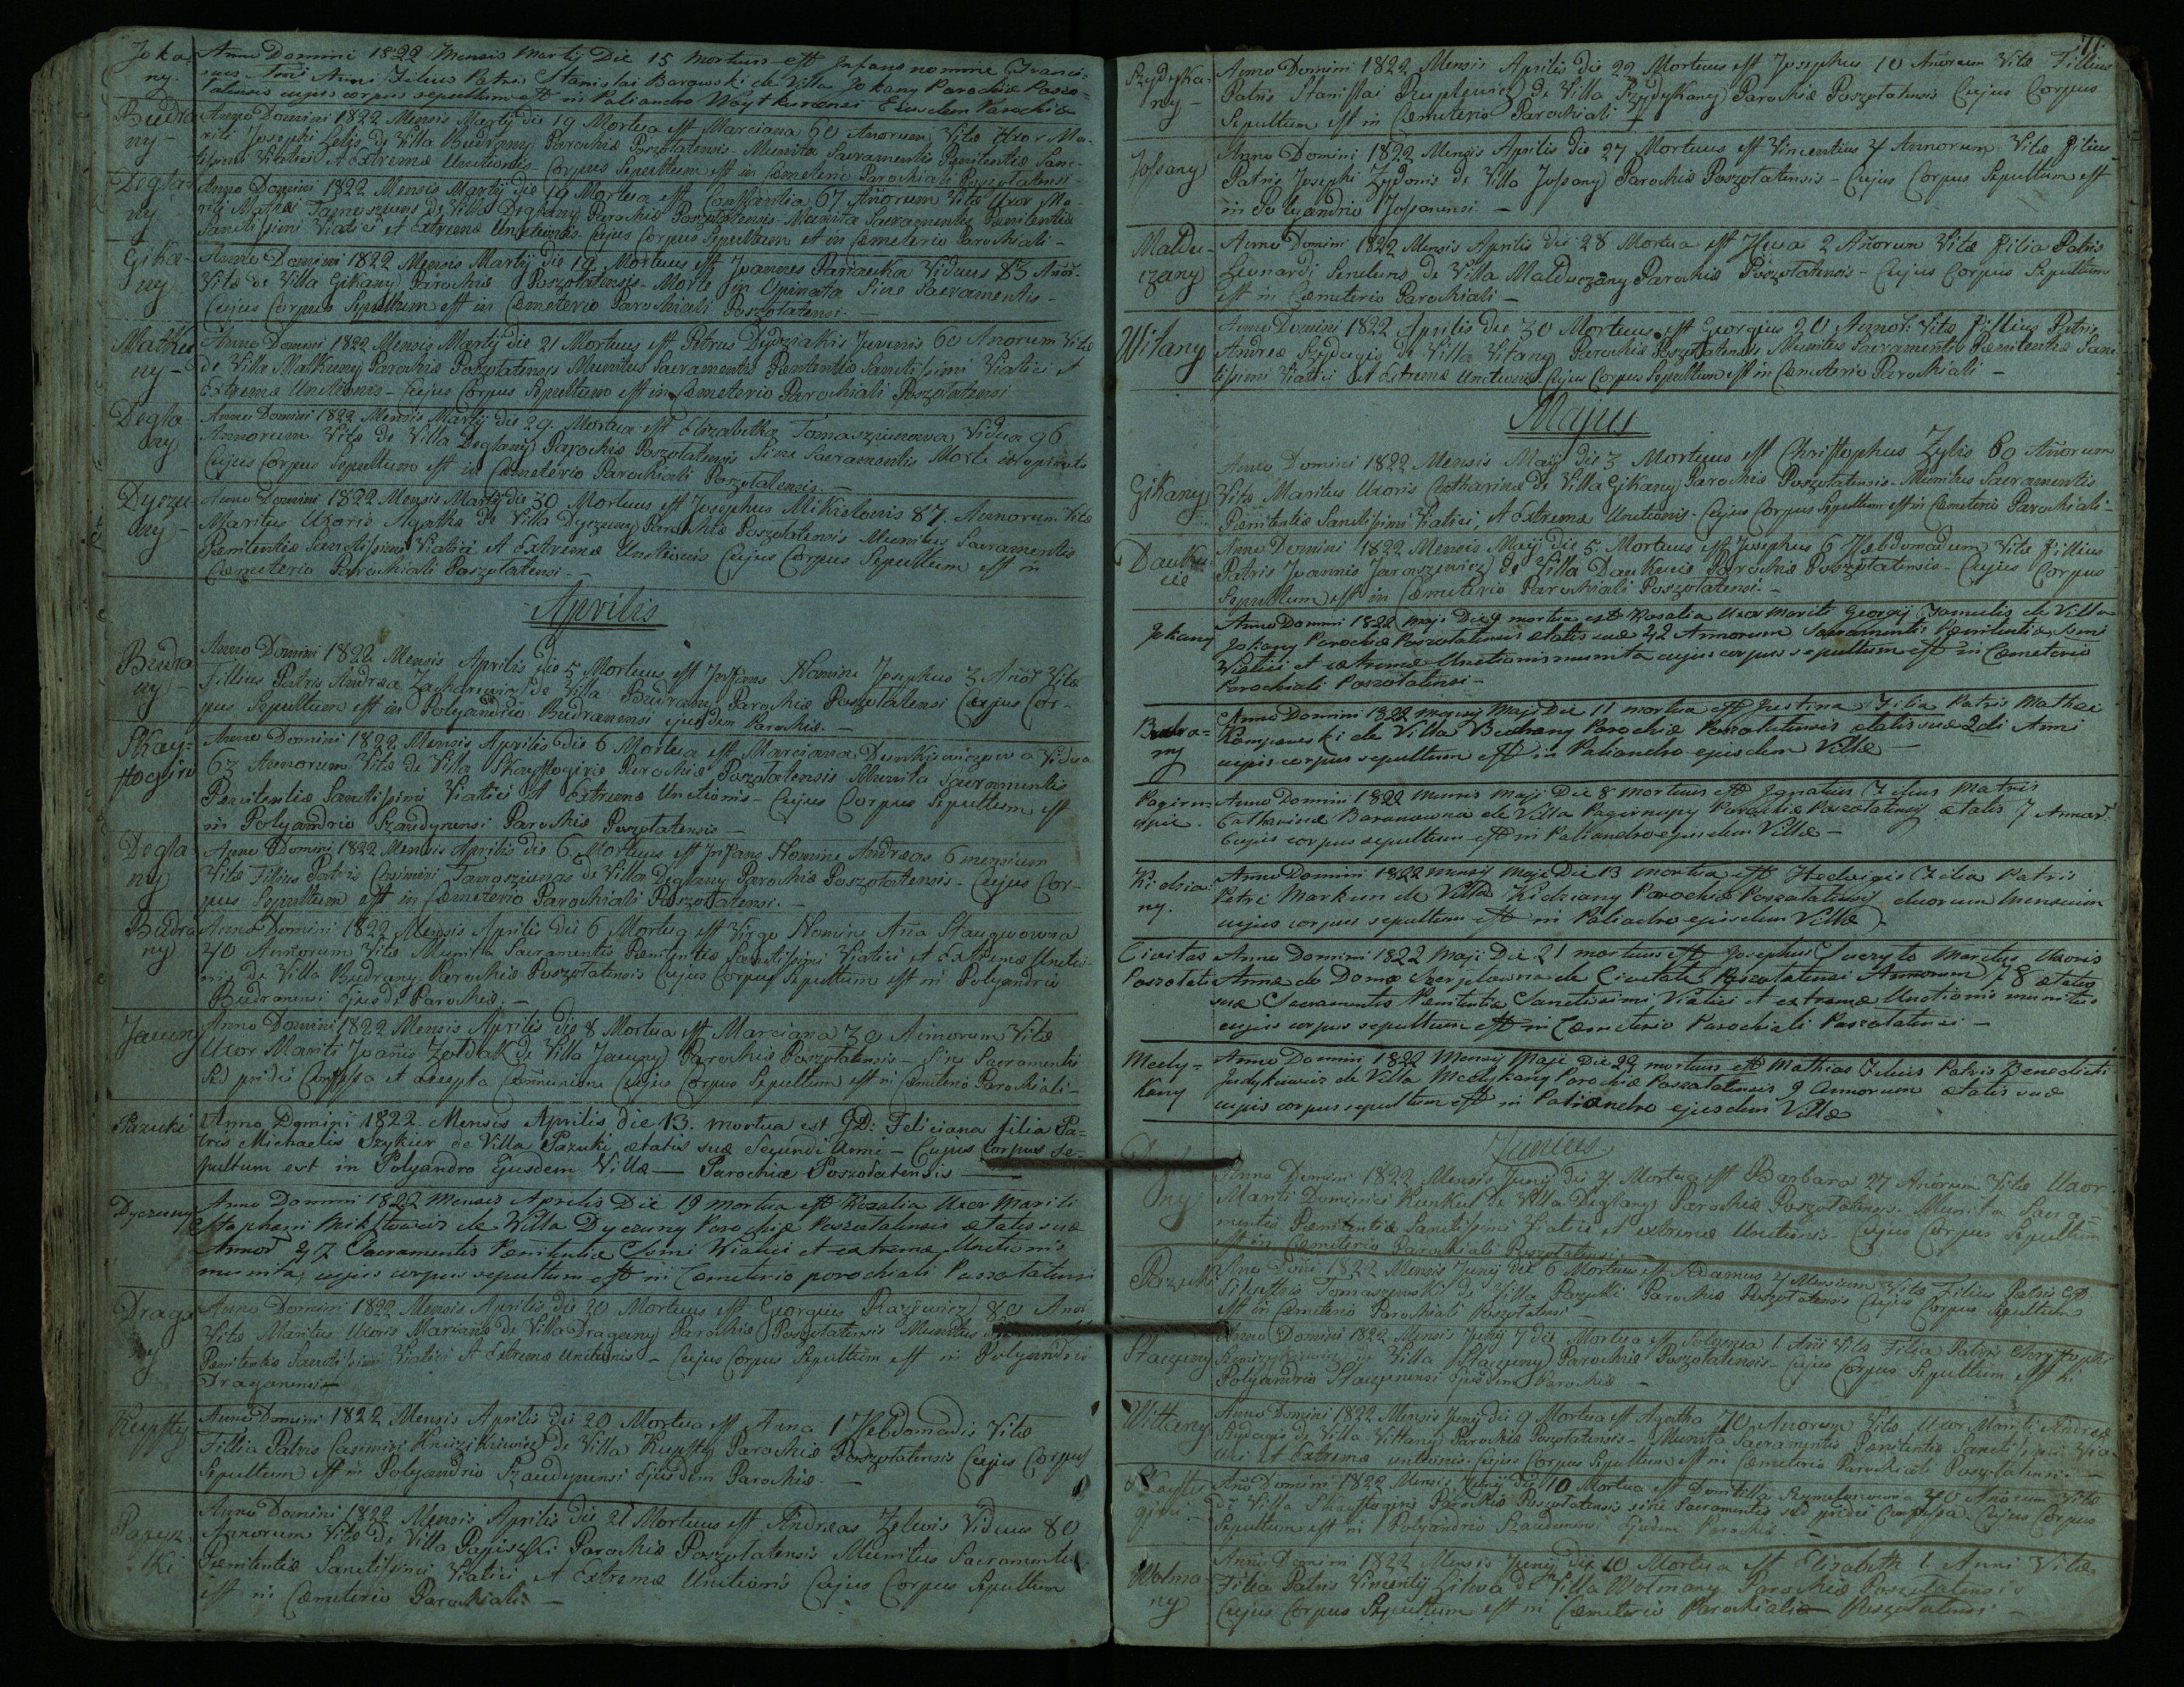 Joka-
ny.
Anno Domini 1822 Mensis Martij Die 15 mortuus est Infans nomine Franci-
scus Anni Filius Patris Stanislai Barowski de Villa Jokany Parochiæ Poszo-
latensis cujus corpus sepultum est in Poliandro Ejusdem Parochiæ
Budra
ny -
Anno Domini 1822 Mensis Martij die 19 Mortua est Marciana 60 Anorum Vitæ Uxor Ma-
riti Josephi Lelis de Villa Budrany Parochiæ Poszolatensis - Munita Sacramentis Pænitentiæ Sanc-
tissimi Viatici et Extremæ Unctionis Corpus Sepultum est in Cæmeterio Parochiali Poszolatensi -
Degla
ny
Anno Domini 1822 Mensis Martij die 19 Mortua est Constantia 67 Añorum Vitæ Uxor Ma-
riti Mathæi Tamosziuns de Villa Deglany Parochiæ Poszolatensis Munita Sacramentis Pænitentiæ
Sanctissimi Viatici et Extremæ Unctionis Cujus Corpus Sepultum est in Cæmeterio Parochiali -
Gika-
ny
Anno Domini 1822 Mensis Martij die 19 Mortuus est Joannes Viduus 83 Añor.
Vitæ de Villa Gikany Parochiæ Poszolatensis - Morte in Opinata Sine Sacramentis -
Cujus Corpus Sepultum est in Cæmeterio Parochiali Poszolatensi. -
Matku
ny -
Anno Domini 1822 Mensis Martij die 21 Mortuus est Petrus Juvenis 60 Anorum Vitæ
de Villa Matkuny Parochiæ Poszolatensis Munitus Sacramentis Pænitentiæ Sanctissimi Viatici et
Extremæ Unctionis - Cujus Corpus Sepultum est in Cæmeterio Parochiali Poszolatensi
Degla-
ny
Anno Domini 1822 Mensis Martij die 29. Mortua est Elizabetha Tomasziunowa Vidua 96
Annorum Vitæ de Villa Deglany Parochiæ Poszolatensis Sine Sacramentis Morte
Cujus Corpus Sepultum est in Cæmeterio Parochiali Poszolatensis. -
Dyczu
ny -
Anno Domini 1822 Mensis Martij die 30 Mortuus est Josephus 87. Annorum Vitæ
Maritus Uxoris Agathæ de Villa Dyczuny Parochiæ Poszolatensis Munitus Sacramentis
Pænitentiæ Sanctissimi Viatici et Extremæ Unctionis Cujus Corpus Sepultum est in
Cæmeterio Parochiali Poszolatensi. -
Aprilis
Budra
ny -
Anno Domini 1822 Mensis Aprilis die 5 Mortuus est Infans Nomine Josephus 3 Añor Vitæ
Fillius Patris Andrea de Villa Budrany Parochiæ Poszolatensi Cujus Cor-
pus Sepultum est in Polyandrio Budranensi ejusdem Parochiæ. -
Skay=
stogiri
Anno Domini 1822 Mensis Aprilis die 6 Mortua est Marciana Vidua
63 Annorum Vitæ de Villa Skaystogirie Parochiæ Poszolatensis Munita Sacramentis
Pænitentiæ Sanctissimi Viatici et Extremæ Unctionis - Cujus Corpus Sepultum est
in Polyandrio Szaudynensi Parochiæ Poszolatensis -
Degla
ny
Anno Domini 1822 Mensis Aprilis die 6. Mortuus est Infans Nomine Andreas 6 mensium
Vitæ Fillius Patris Casimiri Tamosziunas de Villa Deglany Parochiæ Poszolatensis - Cujus Cor-
pus Sepultum est in Cæmeterio Parochiali Poszolatensi. -
Budra
ny
Anno Domini 1822 Mensis Aprilis die 6 Mortua est Virgo Nomine Aña
40 Annorum Vitæ Munita Sacramentis Pænitentiæ Sanctissimi Viatici et Extremæ Unctio-
nis de Villa Budrany Parochiæ Poszolatensis Cujus Corpus Sepultum est in Polyandrio
Budranensi Ejusde Parochiæ. -
Jacuny
Anno Domini 1822 Mensis Aprilis die 8 Mortua est Marciana 30 Annorum Vitæ
Uxor Mariti Joañis Zoldak de Villa Jacuny Parochiæ Poszolatensis - Sine Sacramentis
Sed pridie Confessa et adepta Comunione Cujus Corpus Sepultum est in Cæmeterio Parochiali -
Pazuki
Anno Domini 1822. Mensis Aprilis die 13. mortua est GD: Feliciana filia Pa-
tris Michaelis Szykier de Villa Pazuki ætatis suæ Secundi Anni - Cujus Corpus se-
pultum est in Polyandro Ejusdem Villæ - Parochiæ Poszolatensis
Dyczuny
Anno Domini 1822 Mensis Aprilis Die 19 mortua est Rosalia Uxor Mariti
Stephani de Villa Dyczuny Parochiæ Poszolatensis ætatis suæ
Annor 27 Sacramentis Pænitentiæ Ssmi Viatici et extremæ Unctionis
munita, cujus corpus sepultum est in Cæmeterio parochiali Poszolatensi
Draga
ny
Anno Domini 1822 Mensis Aprilis die 20 Mortuus est Georgius 80 Anor
Vitæ Maritus Uxoris Mariannæ de Villa Dragany Parochiæ Poszolatensis Munitus
Pænitentiæ Sanctissimi Viatici et Extremæ Unctionis - Cujus Corpus Sepultum est in Polyandrio
Draganensi
Kupsty
Anno Domini 1822 Mensis Aprilis die 20 Mortua est Anna 1 Hebdomadis Vitæ
Fillia Patris Casimiri de Villa Kupsty Parochiæ Poszolatensis Cujus Corpus
Sepultum est in Polyandrio Szaudynensi Ejusdem Parochiæ. -
Anno Domini 1822 Mensis Aprilis die 21 Mortuus est Andreas Viduus 80
Annorum Vitæ de Villa Parochiæ Poszolatensis Munitus Sacramentis
Pænitentiæ Sanctissimi Viatici et Extremæ Unctionis Cujus Corpus Sepultum
est in Cæmeterio Parochiali. -
71.
Szydyka-
ny -
Anno Domini 1822 Mensis Aprilis die 22 Mortuus est Josephus 10 Añorum Vitæ Fillius
Patris Stanislai de Villa Szydykany Parochiæ Poszolatensis Cujus Corpus
Sepultum est in Cæmeterio Parochiali
Jossany
Anno Domini 1822 Mensis Aprilis die 27 Mortuus est Vincentius 4 Annorum Vitæ Filius
Patris Josephi Zydonis de Villa Jossany Parochiæ Poszolatensis - Cujus Corpus Sepultum est
in Polyandrio Jossanensi -
Maldu-
czany
Anno Domini 1822 Mensis Aprilis die 28 Mortua est 2 Añorum Vitæ Filia Patris
Leonardi de Villa Malduczany Parochiæ Poszolatensis - Cujus Corpus Sepultum
est in Cæmeterio Parochiali -
Witany
Anno Domini 1822 Aprilis die 30 Mortuus est Georgius 20 Annor. Vitæ Fillius Patris
Andreæ Szydagis de Villa Witany Parochiæ Poszolatensis Munitus Sacramentis Pænitentiæ Sanc-
tissimi Viatici et Extremæ Unctionis Cujus Corpus Sepultum est in Cæmeterio Parochiali -
Majus
Gikany
Anno Domini 1822 Mensis Maij die 3 Mortuus est Christophus Zylis 60 Añorum
Vitæ Maritus Uxoris Catharinæ de Villa Gikany Parochiæ Poszolatensis - Munitus Sacramentis
Pænitentiæ Sanctissimi Viatici, et Extremæ Unctionis - Cujus Corpus Sepultum est in Cæmeterio Parochiali -
Daukn
cie
Anno Domini 1822 Mensis Maij die 5. Mortuus est Josephus 6 Hebdomadum Vitæ Fillius
Patris Joannis Jaroszewicz de Villa Parochiæ Poszolatensis - Cujus Corpus
Sepultum est in Cæmeterio Parochiali Poszolatensi. -
Jokany
Anno Domini 1822 Maji Die 9 mortua est Rosalia Uxor Mariti Georgij de Villa
Jokany Parochiæ Poszolatensis ætatis suæ 42 Annorum Sacramentis Pænitentiæ Ssmi
Viatici et extremæ Unctionis munita cujus corpus sepultum est in Cæmeterio
Parochiali Poszolatensi -
Budra=
ny
Anno Domini 1822 Mensis Maji Die 11 mortua est Justina Filia Patris Mathæi
de Villa Budrany Parochiæ Poszolatensis ætatis suæ 2di Anni
cujus corpus sepultum est in Poliandro ejusdem Villæ -
Anno Domini 1822 Mensis Maji Die 8 mortuus est Ignatius Filius Matris
Catharinæ Baranowna de Villa Parochiæ Poszolatensis ætatis 7 Annor.
Cujus corpus sepultum est in Poliandro ejusdem Villæ -
Kidzia-
ny.
Anno Domini 1822 Mensis Maji Die 13 mortua est Hedvigis Filia Patris
Petri Markun de Villa Kidziany Parochiæ Poszolatensis duorum Mensium
cujus corpus sepultum est in Poliadro ejusdem Villæ
Civitas
Poszolati
Anno Domini 1822 Maji Die 21 mortuus est Josephus Maritus Uxoris
Annæ de Domo de Civitate Poszolatensi Annorum 78 ætatis
suæ Sacramentis Pænitentiæ Sanctissimi Viatici et extremæ Unctionis munitus
cujus corpus sepultum est in Cæmeterio Parochiali Poszolatensi -
Medy-
kany
Anno Domini 1822 Mensis Maji Die 22 mortuus est Mathias Filius Patris Benedicti
de Villa Medykany Parochiæ Poszolatensis 9 Annorum ætatis suæ
cujus corpus sepultum est in Poliandro ejusdem Villæ
Junius
ny
Anno Domini 1822 Mensis Junij die 4 Mortua est Barbara 27 Añorum Vitæ Uxor
Mariti Dominici Kunkul de Villa Deglany Parochiæ Poszolatensis. Munita Sacra-
mentis Pænitentiæ Sanctissimi Viatici et extremæ Unctionis - Cujus Corpus Sepultum
est in Cæmeterio Parochiali Poszolatensi. -
Pazuki
Anno Domi 1822 Mensis Junij die 6 Mortuus est Adamus 4 Mensium Vitæ Filius Patris GD
Silvestris Tomaszewski de Villa Pazuki Parochiæ Poszolatensis Cujus Corpus Sepultum
est in Cæmeterio Parochiali Poszolatensi
Staczuny
Anno Domini 1822 Mensis Junij 7 die Mortua est 1. Añi Vitæ Filia Patris Christophi
de Villa Staczuny Parochiæ Poszolatensis - Cujus Corpus Sepultum est in
Polyandrio Staczunensi Ejusdem Parochiæ -
Wittany
Anno Domini 1822 Mensis Junij die 9 Mortua est Agatha 70 Anorum Vitæ Uxor Mariti Andreæ
Szydagis de Villa Wittany Parochiæ Poszolatensis - Munita Sacramentis Pænitentiæ Sanctissimi Via-
tici et Extremæ unctionis. Cujus Corpus Sepultum est in Cæmeterio Parochiali Poszolatensi. -
Skaysto
giri -
Año Domini 1822 Mensis Junij die 10 Mortua est Domitella 40 Añorum Vitæ
de Villa Skaystogiri Parochiæ Poszolatensis sine Sacramentis sed pridie Confessa. Cujus Corpus
Sepultum est in Polyandrio Szaudinensi Ejusdem Parochiæ -
Wolma
ny
Anno Domini 1822 Mensis Junij die 10 Mortua est Elisabeth 1. Anni Vitæ.
Filia Patris Vincentij Litwa de Villa Wolmany Parochiæ Poszolatensis
Cujus Corpus Sepultum est in Cæmeterio Parochiali Poszolatensi -